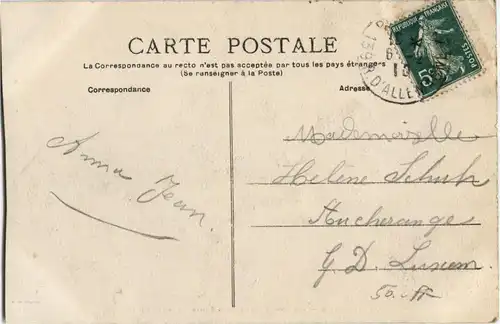 CARTE POSTALE
La Correspondance au recto n'est pas acceptée par tous les pays étrangers
(Se renseigner à la Poste)
Correspondance
Adresse
RÉPUBLIQUE FRANÇAISE
POSTES
5c
139 R. D'ALLE
Anna Jean.
Mademoiselle
Helène Schuh
Aucherange
G. D. Luxem.
50.